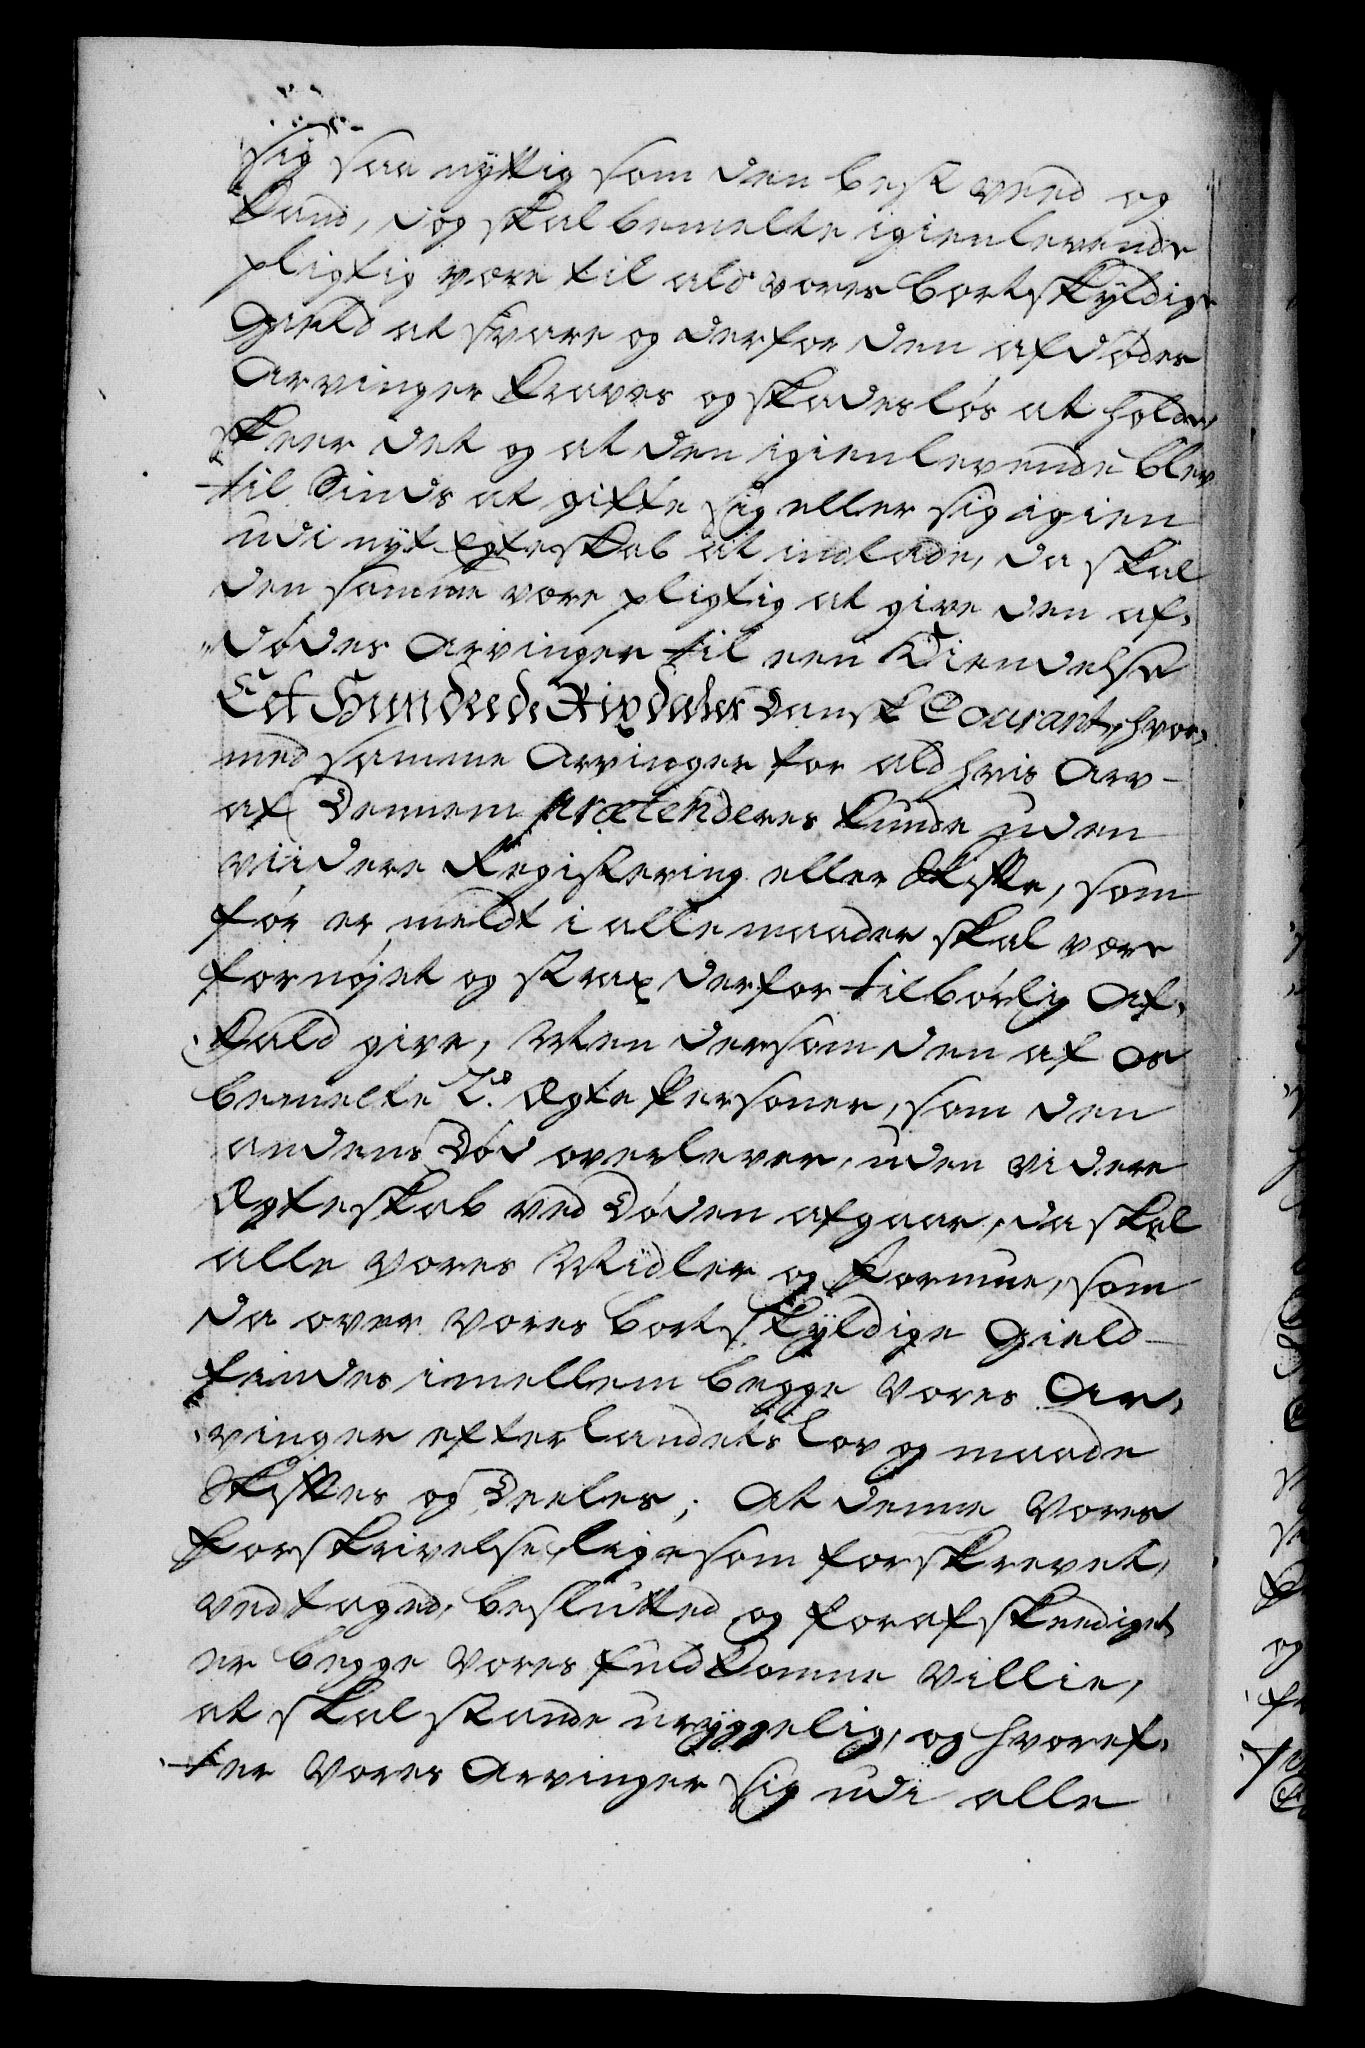 sig saa nyttig som den best veed og
kand, dog skal bemelte igienlevende
pligtig være til ald vores bortskyldige
Gield at svare og derfor den afdødes
Arvinger kraves og skadesløs at holde,
skeer det og at den igienlevende blev
til Sinds at gifte sig eller sig igien
udi nyt Egteskab at indlade, da skal
den samme være pligtig at give den af-
dødes Arvinger til een Kiendelse
Eet Hundrede Rixdaler Dansk Courant, hvor-
med samme Arvinger for ald hvis Arv
af Dennem prætenderes kunde uden
viidere Registering eller Skifte, som
før er meldt i alle maader skal være
fornøjet og strax derfor tilbørlig Af-
kald give, Men dersom den af os
bemelte 2de Ægte Personer, som den
andens Død overlever, uden videre
Ægteskab ved Døden afgaar, da skal
alle vores Midler og Formue, som
da over vores bortskyldige Gield
findes imellem begge vores Ar-
vinger efter Landets Lov og maade
Skiftes og Deeles; At denne vores
forskrivelse, ligesom forskrevet,
vedtaged, beslutted og forafskeediget
er begge vores fuldkomne Villie,
at skal stande uryggelig, og hvoref-
ter vores Arvinger sig udi alle